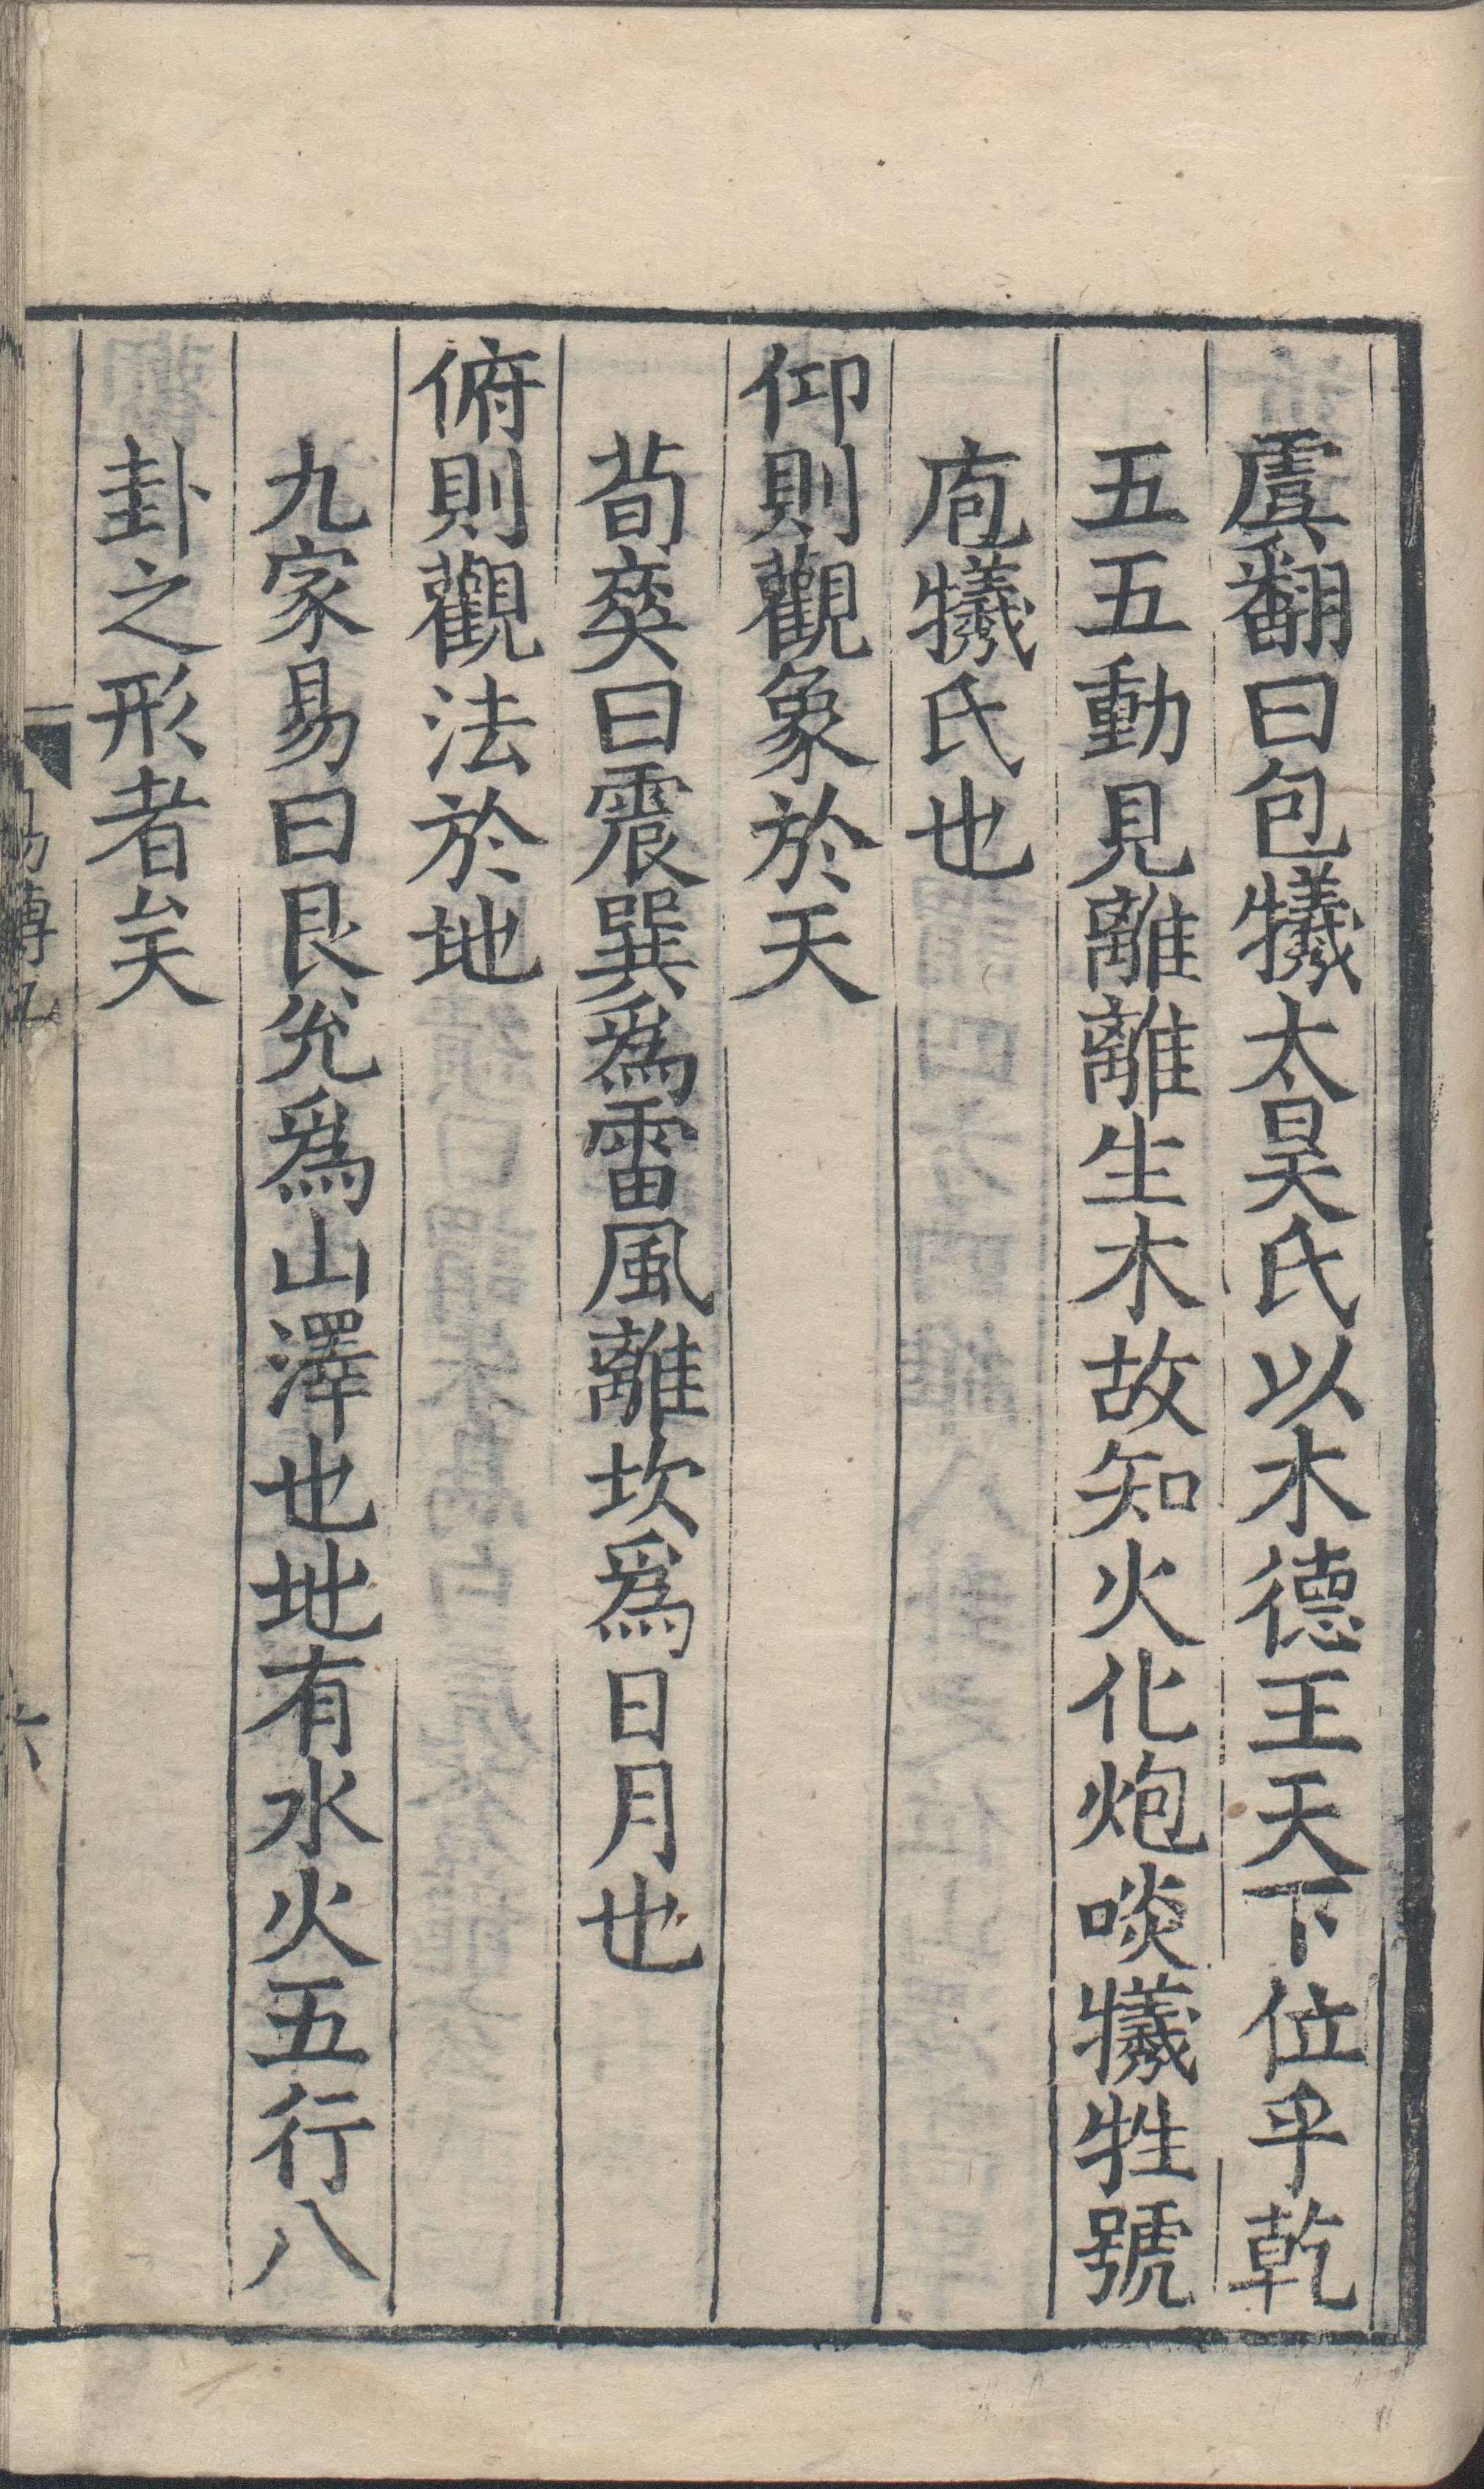 虞翻曰包犧太昊氏以木德王天下位乎乾
五五動見離離生木故知火化炮啖犧牲號
庖犧氏也
仰則觀象於天
荀爽曰震巽爲雷風離坎爲日月也
俯則觀法於地
九家易曰艮兊爲山澤也地有水火五行八
卦之形者矣
易傳九
六